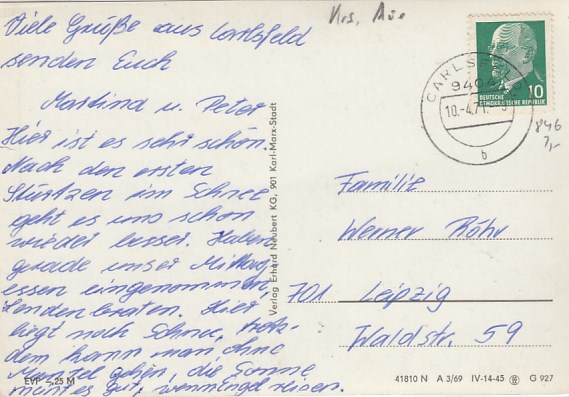 Viele Grüße aus Carlsfeld
senden Euch
Martina u. Peter
Hier ist es sehr schön.
Nach den ersten
Stürtzen im Schnee
geht es uns schon
wieder besser. Haben
gerade unser Mittag
essen eingenommen,
Lendenbraten. Hier
liegt noch Schnee, trotz-
dem kann man, ohne
Mantel gehen, die Sonne
meint es gut,
EVP –,25 M
Verlag Erhard Neubert KG, 901 Karl-Marx-Stadt
Krs. Aue
CARLSFELD
9404
10.-4.71.
b
10
DEUTSCHE
DEMOKRATISCHE REPUBLIK
846
7,-
Familie
Werner Röhr
701 Leipzig
Waldstr. 59
41810 N A 3/69 IV-14-45 G 927